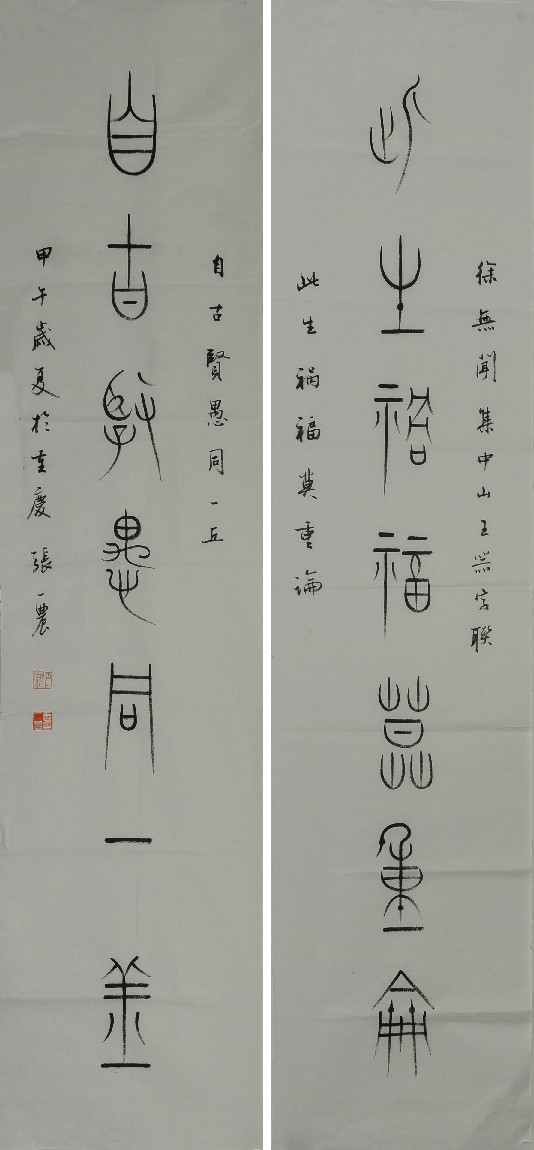 徐無聞集中山王器字聯
此生禍福莫重論
此生禍福莫重論
自古賢愚同一丘
自古賢愚同一丘
甲午歲夏於重慶 張一農